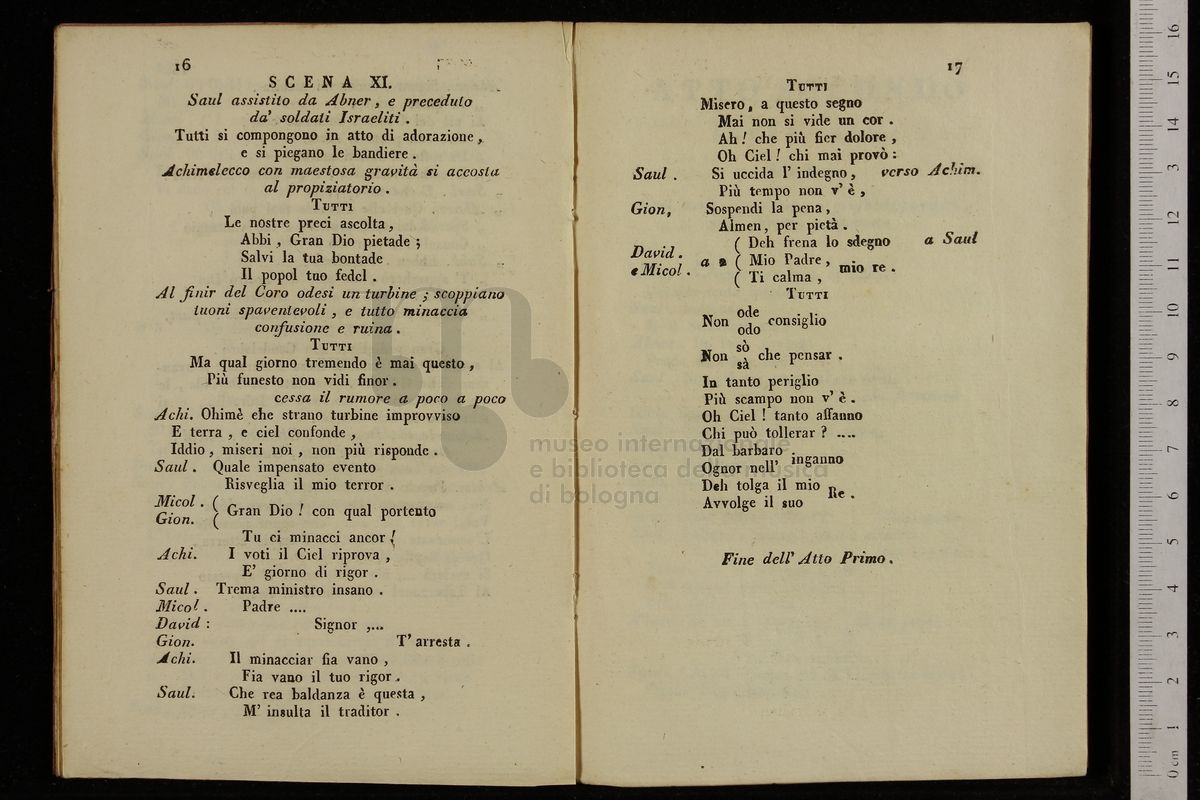 16
SCENA XI.
Saul assistito da Abner, e preceduto
da' soldati Israeliti.
Tutti si compongono in atto di adorazione,
e si piegano le bandiere.
Achimelecco con maestosa gravità si accosta
al propiziatorio.
TUTTI
Le nostre preci ascolta,
Abbi, Gran Dio pietade;
Salvi la tua bontade
Il popol tuo fedel.
Al finir del Coro odesi un turbine; scoppiano
tuoni spaventevoli, e tutto minaccia
confusione e ruina.
TUTTI
Ma qual giorno tremendo è mai questo,
Più funesto non vidi finor.
cessa il rumore a poco a poco
Achi. Ohimè che strano turbine improvviso
E terra, e ciel confonde,
Iddio, miseri noi, non più risponde.
Saul. Quale impensato evento
Risveglia il mio terror.
Micol. (
Gion. ( Gran Dio! con qual portento
Tu ci minacci ancor!
Achi. I voti il Ciel riprova,
E' giorno di rigor.
Saul. Trema ministro insano.
Micol. Padre ....
David: Signor ,...
Gion. T' arresta.
Achi. Il minacciar fia vano,
Fia vano il tuo rigor.
Saul. Che rea baldanza è questa,
M' insulta il traditor.
17
TUTTI
Misero, a questo segno
Mai non si vide un cor.
Ah! che più fier dolore,
Oh Ciel! chi mai provò:
Saul. Si uccida l' indegno, verso Achim.
Più tempo non v' è,
Gion, Sospendi la pena,
Almen, per pietà.
David. e Micol. a 2 ( Deh frena lo sdegno a Saul
( Mio Padre,
( Ti calma, mio re.
TUTTI
Non ode
odo consiglio
Non sò
sà che pensar.
In tanto periglio
Più scampo non v' è.
Oh Ciel! tanto affanno
Chi può tollerar? ....
Dal barbaro
Ognor nell' inganno
Deh tolga il mio
Avvolge il suo Re.
Fine dell' Atto Primo.
museo internazionale
e biblioteca della musica
di bologna
0 cm 1 2 3 4 5 6 7 8 9 10 11 12 13 14 15 16